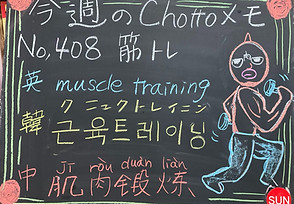 今週のChottoメモ
No,408 筋トレ
英 muscle training
クニュクトレイニン
韓 근육트레이닝
jī ròu duàn liàn
中 肌肉锻炼
SUN